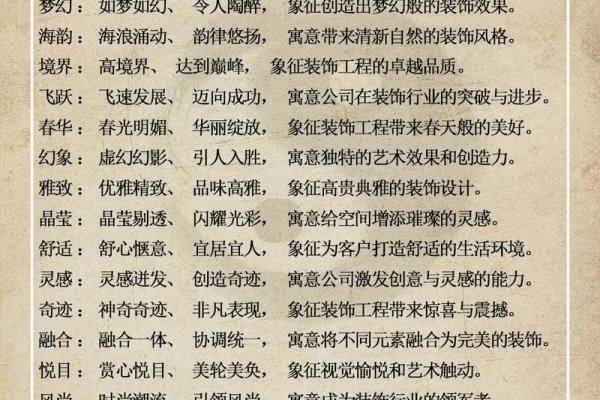 梦幻：如梦如幻、令人陶醉，象征创造出梦幻般的装饰效果。
海韵：海浪涌动、韵律悠扬，寓意带来清新自然的装饰风格。
境界：高境界、达到巅峰，象征装饰工程的卓越品质。
飞跃：飞速发展、迈向成功，寓意公司在装饰行业的突破与进步。
春华：春光明媚、华丽绽放，象征装饰工程带来春天般的美好。
幻象：虚幻幻影、引人入胜，寓意独特的艺术效果和创造力。
雅致：优雅精致、品味高雅，象征高贵典雅的装饰设计。
晶莹：晶莹剔透、闪耀光彩，寓意给空间增添璀璨的灵感。
舒适：舒心惬意、宜居宜人，象征为客户打造舒适的生活环境。
灵感：灵感迸发、创造奇迹，寓意公司激发创意与灵感的能力。
奇迹：神奇奇迹、非凡表现，象征装饰工程带来惊喜与震撼。
融合：融合一体、协调统一，寓意将不同元素融合为完美的装饰。
悦目：赏心悦目、美轮美奂，象征视觉愉悦和艺术触动。
风尚：时尚潮流、引领风尚，寓意成为装饰行业的领军者。